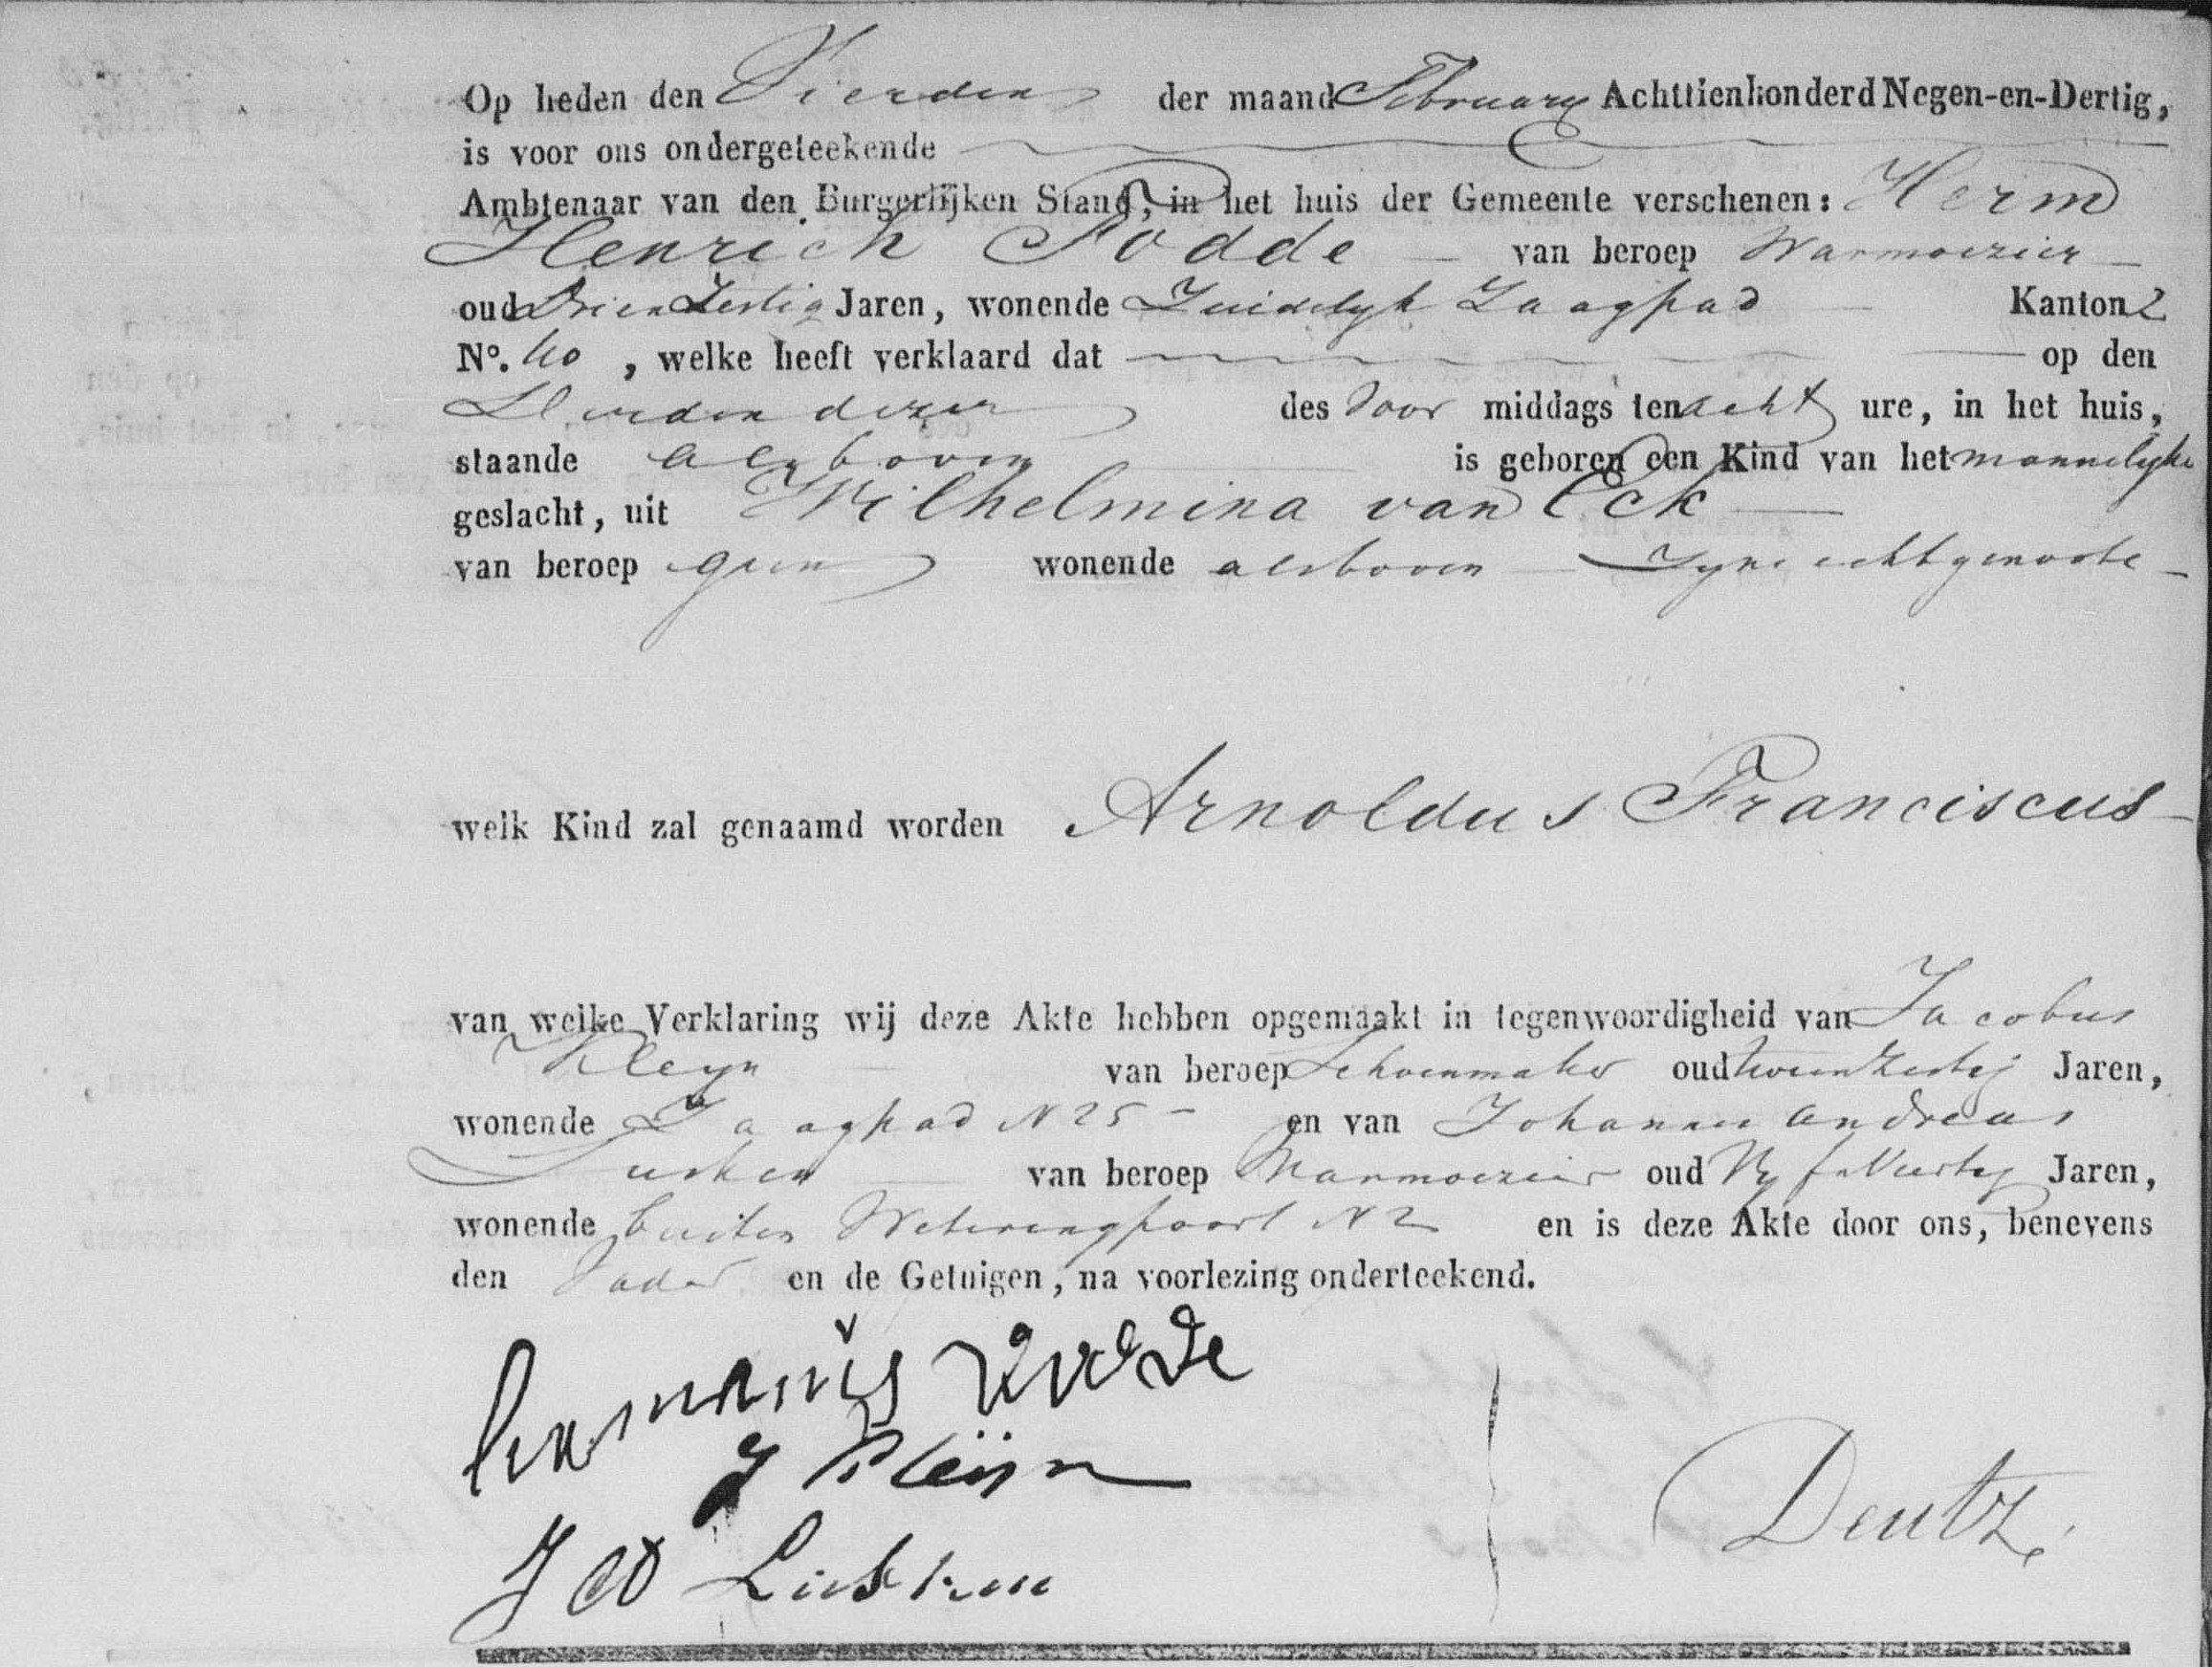 Op heden den Vierden der maand February Achttienhonderd Negen-en-Dertig,
is voor ons ondergeteekende
Ambtenaar van den Burgerlijken Stand, in het huis der Gemeente verschenen: Herm
Henrich Fodde van beroep Warmoezier
oud Drie en Zestig Jaren, wonende Zuidelyk Zaagpad Kanton 2
No. 40, welke heeft verklaard dat op den
Derden dezer des Voor middags ten acht ure, in het huis,
staande als boven is geboren een Kind van het mannelyke
geslacht, uit Wilhelmina van Eck
van beroep geen wonende alsboven Zyne echtgenoote
welk Kind zal genaamd worden Arnoldus Franciscus
van welke Verklaring wij deze Akte hebben opgemaakt in tegenwoordigheid van Jacobus
Kleyn van beroep Schoenmaker oud tweenZestig Jaren,
wonende Zaagpad N 25 en van Johannes Andreas
van beroep Warmoezier oud Vyf Jaren,
wonende buiten Weteringpoort N 2 en is deze Akte door ons, benevens
den Vader en de Getuigen, na voorlezing onderteekend.
J Kleijn
Deutz